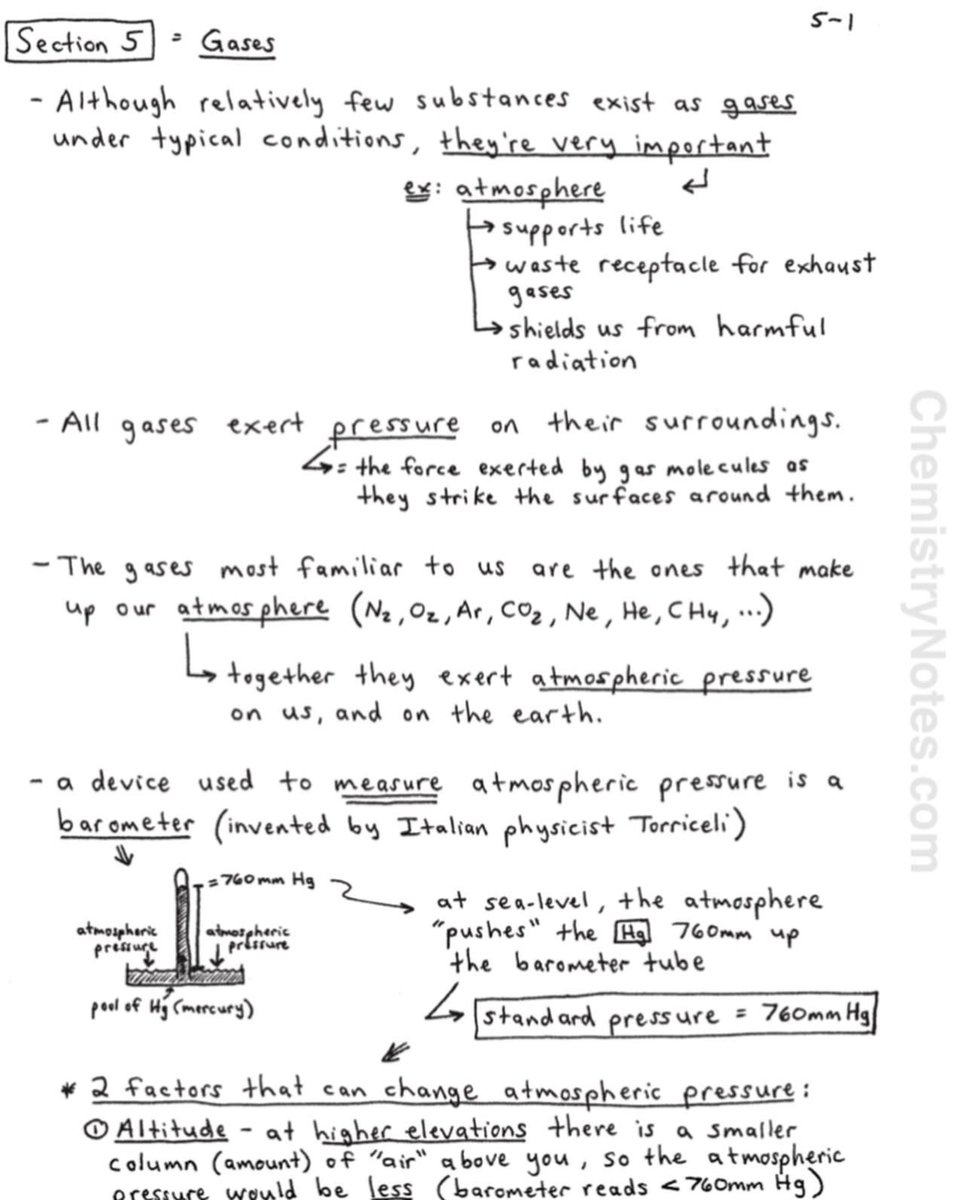 5-1
Section 5 = Gases
- Although relatively few substances exist as gases
under typical conditions, they're very important
ex: atmosphere
→ supports life
→ waste receptacle for exhaust
gases
→ shields us from harmful
radiation
- All gases exert pressure on their surroundings.
= the force exerted by gas molecules as
they strike the surfaces around them.
- The gases most familiar to us are the ones that make
up our atmosphere (N₂, O₂, Ar, CO₂, Ne, He, CH₄, ...)
→ together they exert atmospheric pressure
on us, and on the earth.
- a device used to measure atmospheric pressure is a
barometer (invented by Italian physicist Torriceli)
= 760mm Hg
atmospheric
pressure
atmospheric
pressure
pool of Hg (mercury)
at sea-level, the atmosphere
"pushes" the Hg 760mm up
the barometer tube
standard pressure = 760mm Hg
* 2 factors that can change atmospheric pressure:
① Altitude - at higher elevations there is a smaller
column (amount) of "air" above you, so the atmospheric
pressure would be less (barometer reads < 760mm Hg)
ChemistryNotes.com